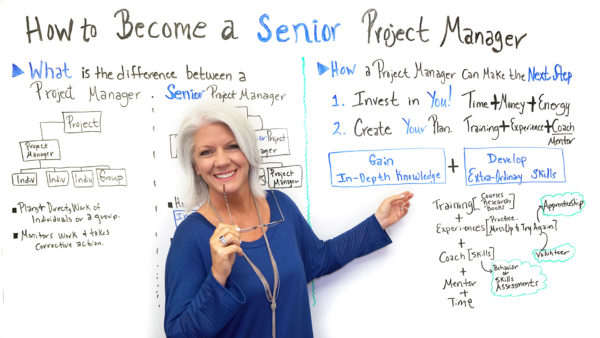 How to Become a Senior Project Manager
What is the difference between a
Project Manager Senior Project Manager
Project
Project Manager
Indiv Indiv Indiv Group
Plans & Directs Work of
Individuals or a group.
Monitors Work & takes
Corrective action.
Project
Project
Manager
How a Project Manager Can Make the Next Step
1. Invest in You! Time + Money + Energy
2. Create Your Plan. Training + Experience + Coach
Mentor
Gain
In-Depth Knowledge
+
Develop
Extra-Ordinary Skills
Training [Courses
Research
Books
+
Experiences [Practice.
Mess Up & Try Again]
+
Coach [Skills]
+
Mentor
+
Time
Apprenticeship
Volunteer
Behavior
or
Skills
Assessments